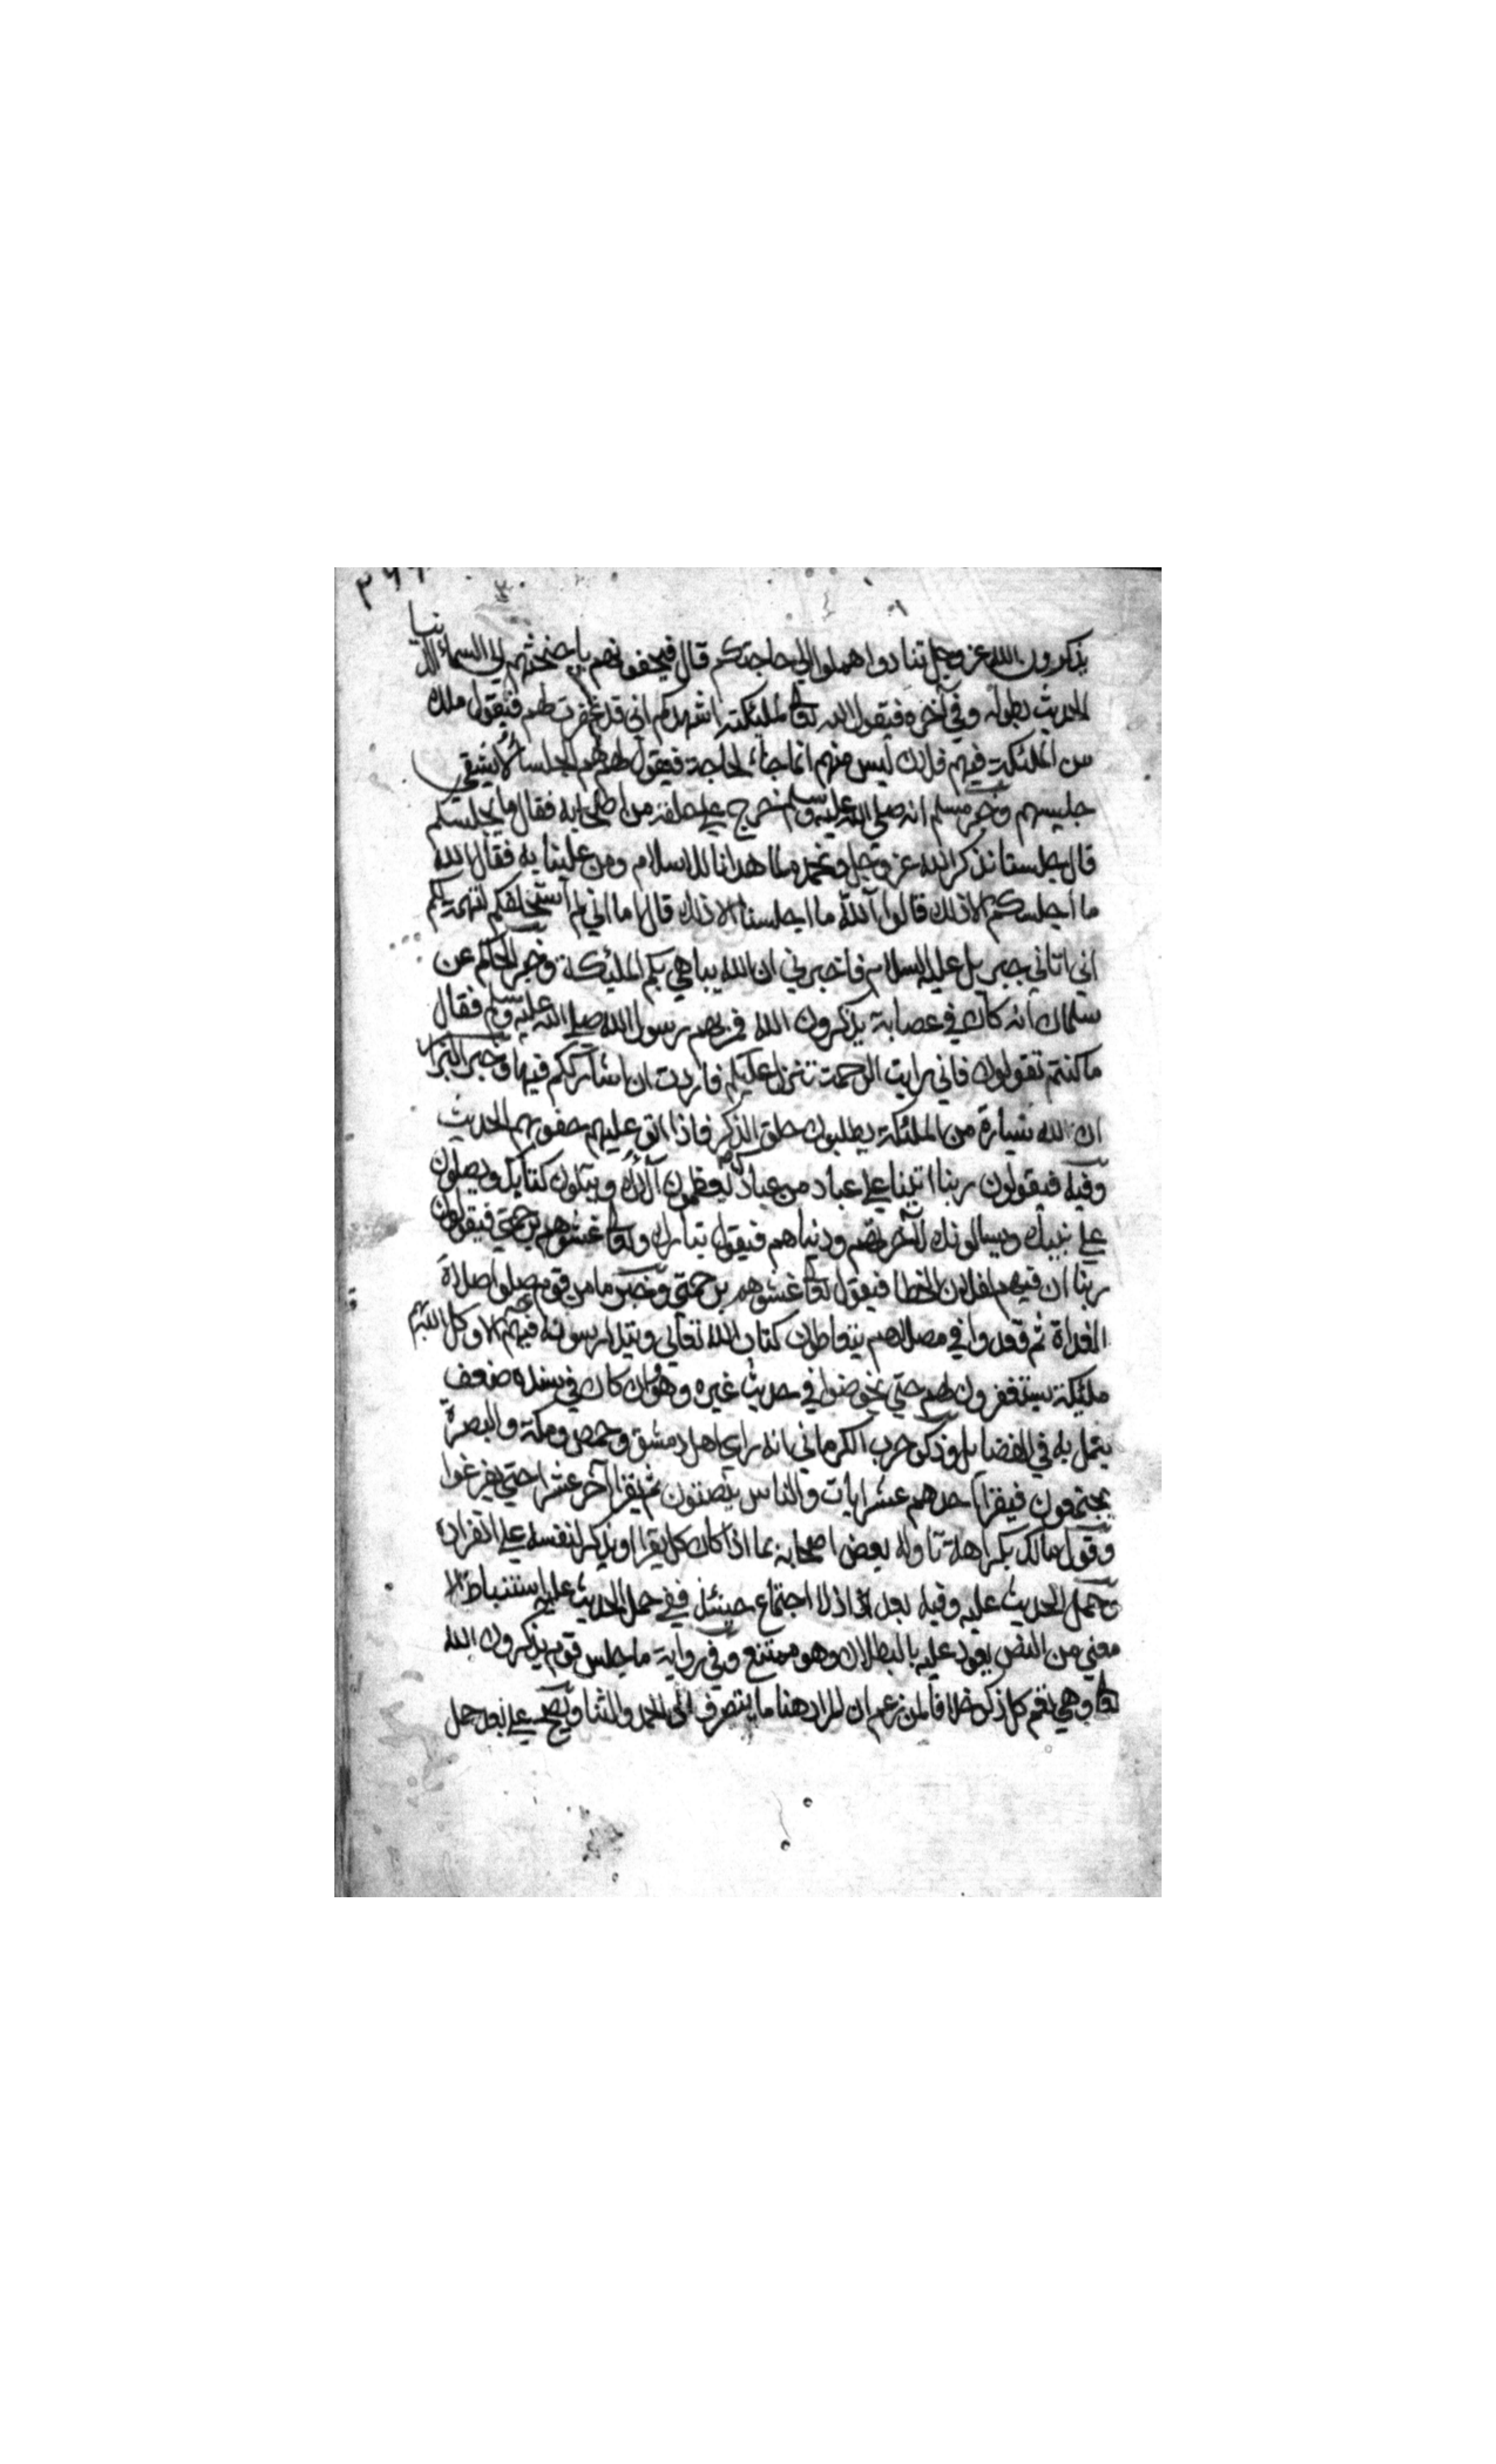 يذكرون الله عز وجل تنادوا هلموا الي حاجتكم قال فيحفونهم باجنحتهم الي السماء الدنيا
الحديث بطوله وفي آخره فيقول الله تعالى لملئكته اشهدكم اني قد غفرت لهم فيقول ملك
من الملئكة فيهم فلان ليس منهم انما جاء لحاجة فيقول لهم هم الجلساء لا يشقي
جليسهم وخبر مسلم انه صلي الله عليه وسلم خرج علي حلقة من اصحابه فقال ما يجلسكم
قال جلسنا نذكر الله عز وجل ونحمده لما هدانا للاسلام ومن علينا به فقال الله
ما اجلسكم الا ذلك قالوا آلله ما اجلسنا الا ذلك قال اما اني لم استحلفكم لتهمة لكم
اني اتاني جبريل عليه السلام فاخبرني ان الله يباهي بكم الملئكة وخبر الحاكم عن
سلمان انه كان في عصابة يذكرون الله فمر بهم رسول الله صلي الله عليه وسلم فقال
ما كنتم تقولون فاني رايت الرحمة تنزل عليكم فاردت ان اشارككم فيها وخبر البزار
ان لله سيارة من الملئكة يطلبون حلق الذكر فاذا اتو عليهم حفو بهم الحديث
وفيه فيقولون ربنا اتينا علي عباد من عبادك يعظمون آلاءك ويتلون كتابك ويصلون
علي نبيك ويسالونك لآخرتهم ودنياهم فيقول تبارك وتعالى غشوهم برحمتي فيقولون
ربنا ان فيهم فلان الخطا فيقول تعالى غشوهم برحمتي وخبر ما من قوم صلوا صلاة
الغداة ثم قعدوا في مصلاهم يتعاطون كتاب الله تعالي ويتدارسونه فيهم الا وكل الله بهم
ملئكة يستغفرون لهم حتي يخوضوا في حديث غيره وهو وان كان في سنده ضعف
يعمل به في الفضايل وذكر حرب الكرماني انه راي اهل دمشق وحمص ومكة والبصرة
يجتمعون فيقرا احدهم عشر ايات والناس ينصتون ثم يقرا آخر عشرا حتي يفرغوا
وقول مالك بكراهة تاوله بعض اصحابه بما اذا كان كل يقرا او يذكر لنفسه علي انفراده
وحمل الحديث عليه وفيه بعد اذ اذ لا اجتماع حينئذ ففي حمل الحديث عليه استنباط الا
معني من النص يعود عليه بالبطلان وهو ممتنع وفي رواية ما جلس قوم يذكرون الله
تعالى وهي تعم كل ذكر خلافا لمن زعم ان المراد هنا ما ينصرف الى الحمد والثنا ويصح علي بعد حمل